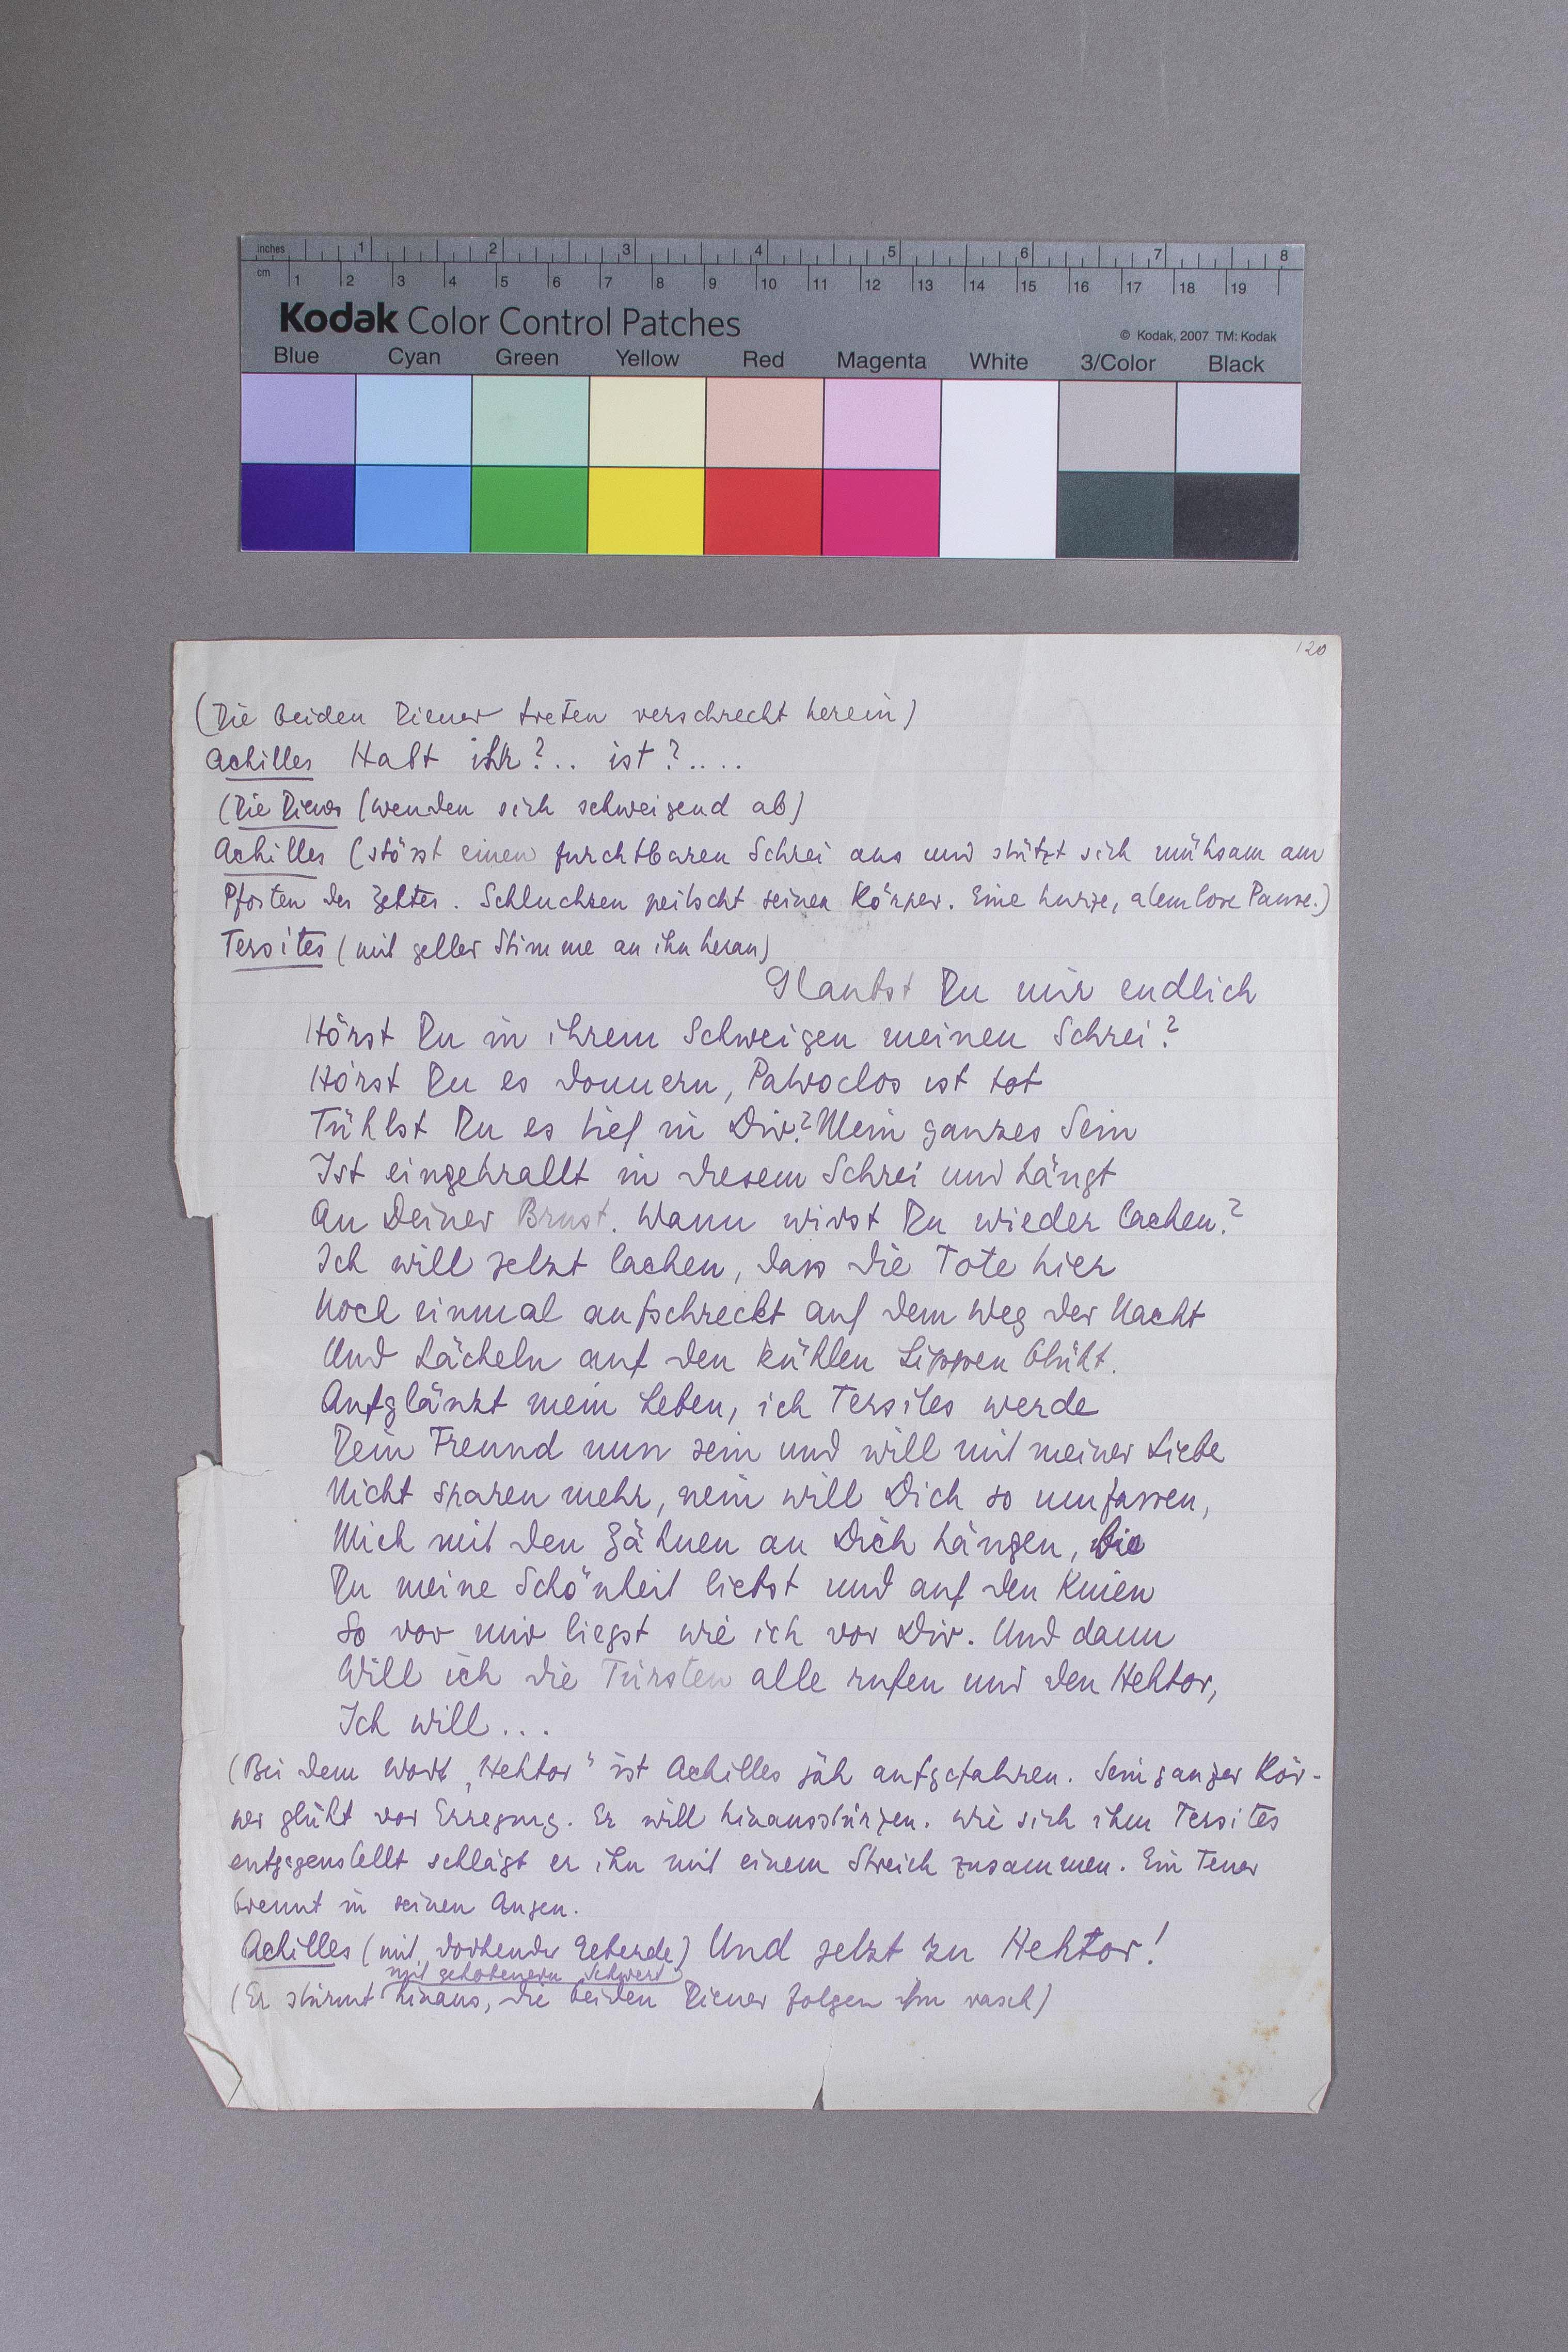 inches 1 2 3 4 5 6 7 8
cm 1 2 3 4 5 6 7 8 9 10 11 12 13 14 15 16 17 18 19
Kodak Color Control Patches
© Kodak, 2007 TM: Kodak
Blue Cyan Green Yellow Red Magenta White 3/Color Black
120
(Die beiden Diener treten verschreckt herein)
Achilles Habt ihr?.. ist?....
(Die Diener (wenden sich schweigend ab)
Achilles (stösst einen furchtbaren Schrei aus und stützt sich mühsam am
Pfosten des Zeltes. Schluchzen peitscht seinen Körper. Eine kurze, atemlose Pause.)
Tersites (mit geller Stimme an ihn heran)
Glaubst Du mir endlich
Hörst Du in ihrem Schweigen meinen Schrei?
Hörst Du es donnern, Patroclos ist tot
Fühlst Du es tief in Dir? Mein ganzes Sein
Ist eingekrallt in diesem Schrei und hängt
An Deiner Brust. Wann wirst Du wieder lachen?
Ich will jetzt lachen, dass die Tote hier
Noch einmal aufschreckt auf dem Weg der Nacht
Und Lächeln auf den kühlen Lippen blüht.
Aufglänzt mein Leben, ich Tersites werde
Dein Freund nun sein und will mit meiner Liebe
Nicht sparen mehr, nein will Dich so umfassen,
Mich mit den Zähnen an Dich hängen, bis
Du meine Schönheit liebst und auf den Knien
So vor mir liegst wie ich vor Dir. Und dann
Will ich die Fürsten alle rufen und den Hektor,
Ich will...
(Bei dem Wort „Hektor" ist Achilles jäh aufgefahren. Sein ganzer Kör-
per glüht vor Erregung. Er will hinausstürzen. Wie sich ihm Tersites
entgegenstellt schlägt er ihn mit einem Streich zusammen. Ein Feuer
brennt in seinen Augen.
Achilles (mit drohender Geberde) Und jetzt zu Hektor!
mit gehobenem Schwert
(Er stürmt hinaus, die beiden Diener folgen ihm rasch)